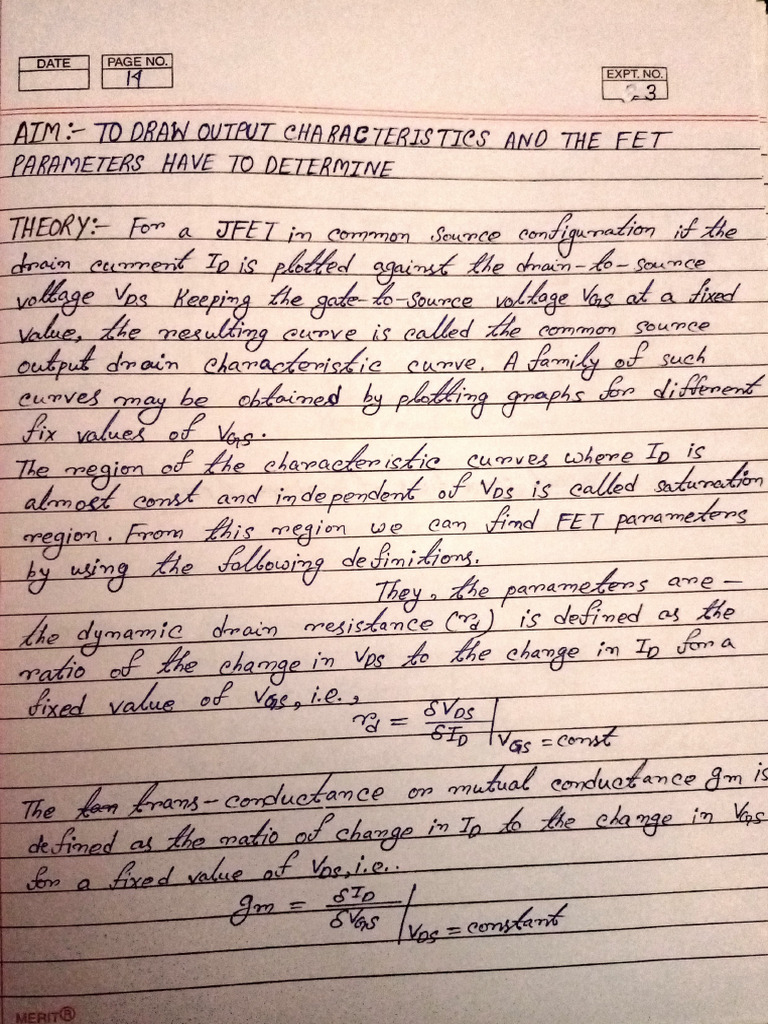 DATE
PAGE NO.
14
EXPT. NO.
3
AIM:- TO DRAW OUTPUT CHARACTERISTICS AND THE FET
PARAMETERS HAVE TO DETERMINE
THEORY:- For a JFET in common source configuration if the
drain current I_D is plotted against the drain-to-source
voltage V_DS Keeping the gate-to-source voltage V_GS at a fixed
value, the resulting curve is called the common source
output drain characteristic curve. A family of such
curves may be obtained by plotting graphs for different
fix values of V_GS.
The region of the characteristic curves where I_D is
almost const and independent of V_DS is called saturation
region. From this region we can find FET parameters
by using the following definitions.
They, the parameters are -
the dynamic drain resistance (r_d) is defined as the
ratio of the change in V_DS to the change in I_D for a
fixed value of V_GS, i.e.,
r_d = δV_DS / δI_D | V_GS = const
The trans-conductance or mutual conductance gm is
defined as the ratio of change in I_D to the change in V_GS
for a fixed value of V_DS, i.e..
gm = δI_D / δV_GS | V_DS = constant
MERIT®